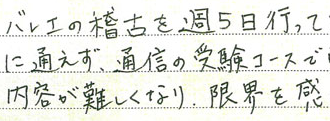 バレエの稽古を週5日行って
に通えず、通信の受験コースで
内容が難しくなり、限界を感